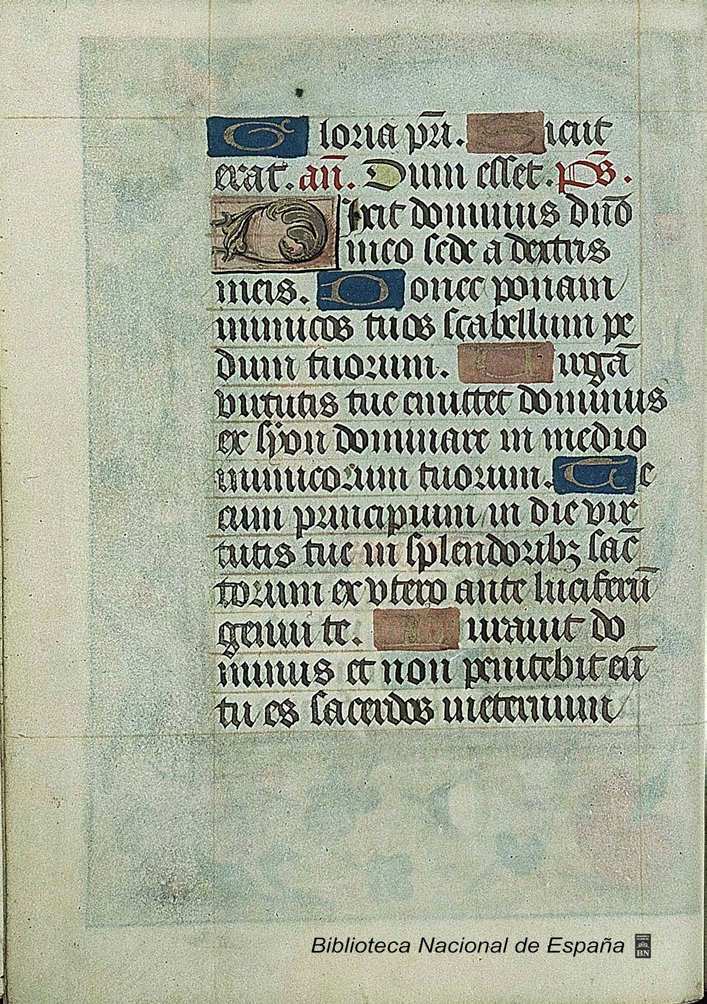 Gloria pr̄i. Sicut
erat. an̄. Dum esset. p̄s.
Dixit dominus dn̄o
meo sede a dextris
meis. Donec ponam
inimicos tuos scabellum pe
dum tuorum. Uirgā
virtutis tue emittet dominus
ex syon dominare in medio
inimicorum tuorum. Te
cum principium in die vir
tutis tue in splendoribꝫ sāc
torum ex vtero ante luciferū
genui te. Iurauit do
minus et non penitebit eū
tu es sacerdos ineternum
Biblioteca Nacional de España
BN